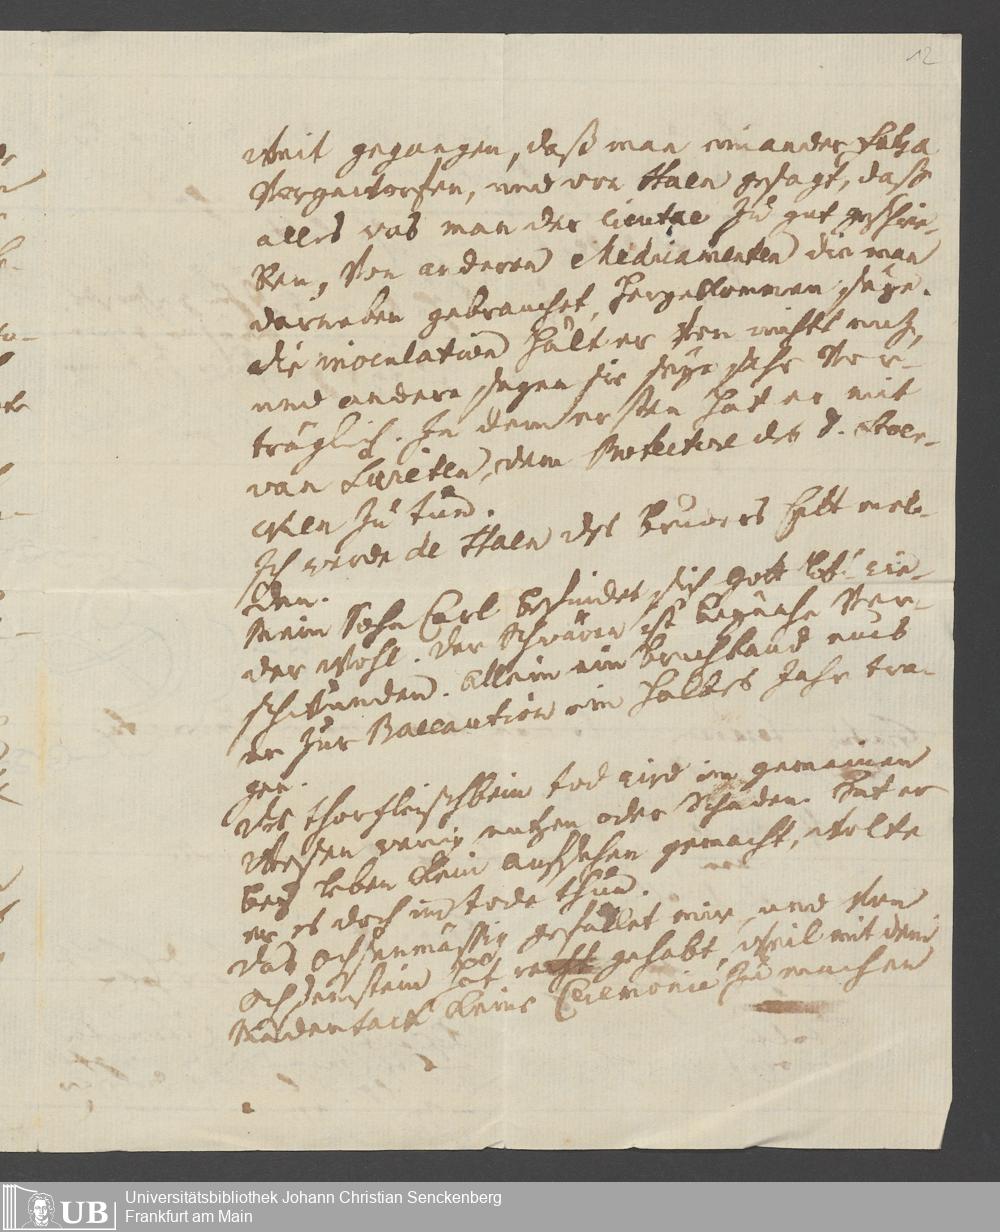 12
weit gegangen, daß man einander
vorgeworfen, und von Haen gesagt, daß
alles was man der cicutae zu gut geschrie-
ben, von anderen Medicamenten die man
darneben gebrauchet, hergekommen seye.
die inoculation hält er von nichts nutz,
und andere sagen sie seye sehr ver-
träglich. In dem ersten hat er mit
van Swieten, dem Protectore des D. Stoer-
cken zu tun.
Ich werde de Haen des Bruders hlbr mel-
den.
Mein Sohn Carl befindet sich Gott lob! wie-
der wohl. Der Schwären ist beynahe ver-
schwunden. Allein ein Bruchband muß
er zur Praecaution ein halbes Jahr tra-
gen.
Des Thorfleischbein tod wird im gemeinen
Wesen wenig nutzen oder Schaden. Hat er
bey leben kein aufsehen gemacht, wolte
er es doch im tode thun.
Das ochsenmäßig gefallet mir, und von
Ochsenstein hat recht gehabt, weil mit dem
Madensack keine Ceremonie zu machen
Universitätsbibliothek Johann Christian Senckenberg
Frankfurt am Main
UB